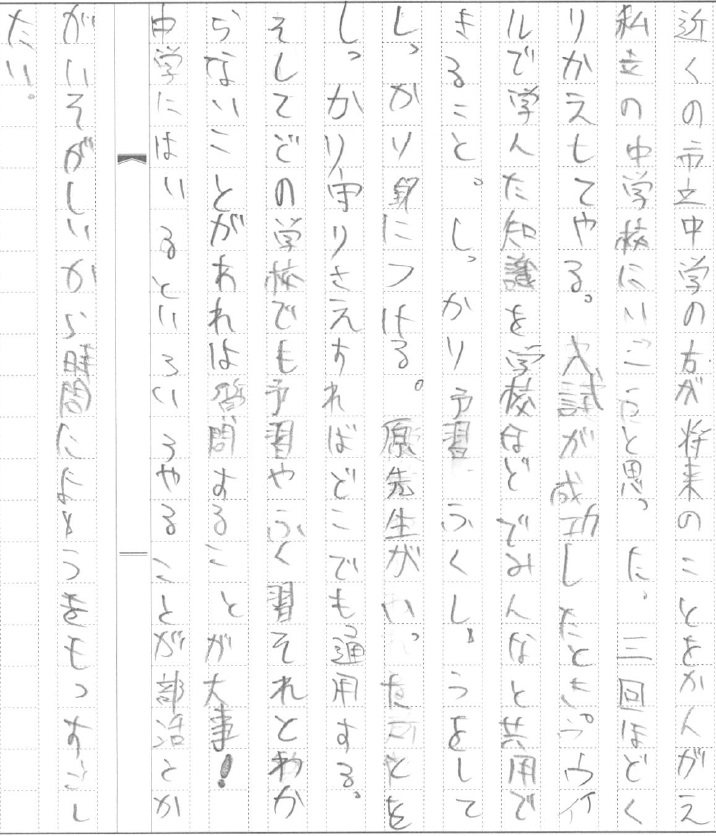 近くの市立中学の方が将来のことをかんがえ
私立の中学校にいこうと思った。三回ほどく
りかえしてやる。入試が成功したとき、ウイ
ルで学んた知識を学校などでみんなと共用で
きること。しっかり予習ふくしゅうをして
しっかり身につける。原先生がいったことを
しっかり守りさえすればどこでも通用する。
そしてどの学校でも予習やふく習それとわか
らないことがあれは質問することが大事!
中学にはいるといろいろやることが部活とか
がいそがしいから時間たんようをもつすごし
たい。